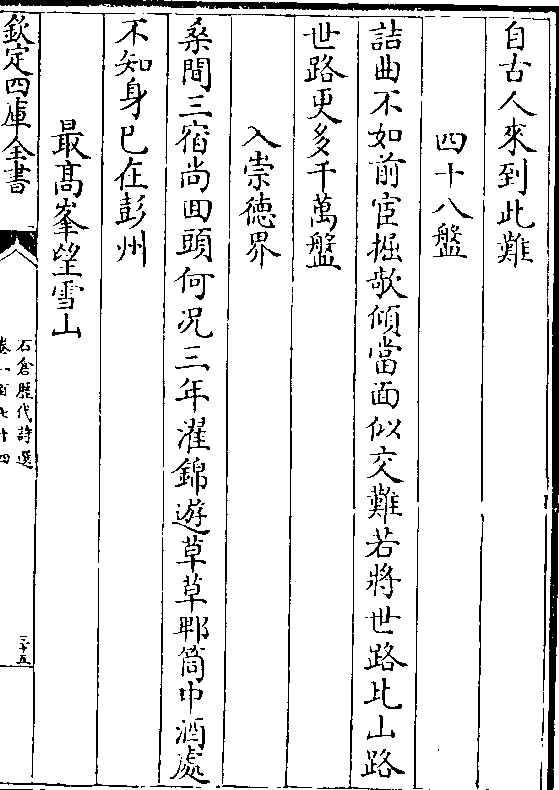 自古人來到此難
四十八盤
詰曲不如前宦掘欹傾當面似交難若將世路比山路
世路更多千萬盤
入崇德界
桑間三宿尚回頭何况三年濯錦遊草草郫筒中酒處
不知身已在彭州
最髙峯望雪山
欽定四庫全書
石倉歷代詩選
卷一百七十四
三十五